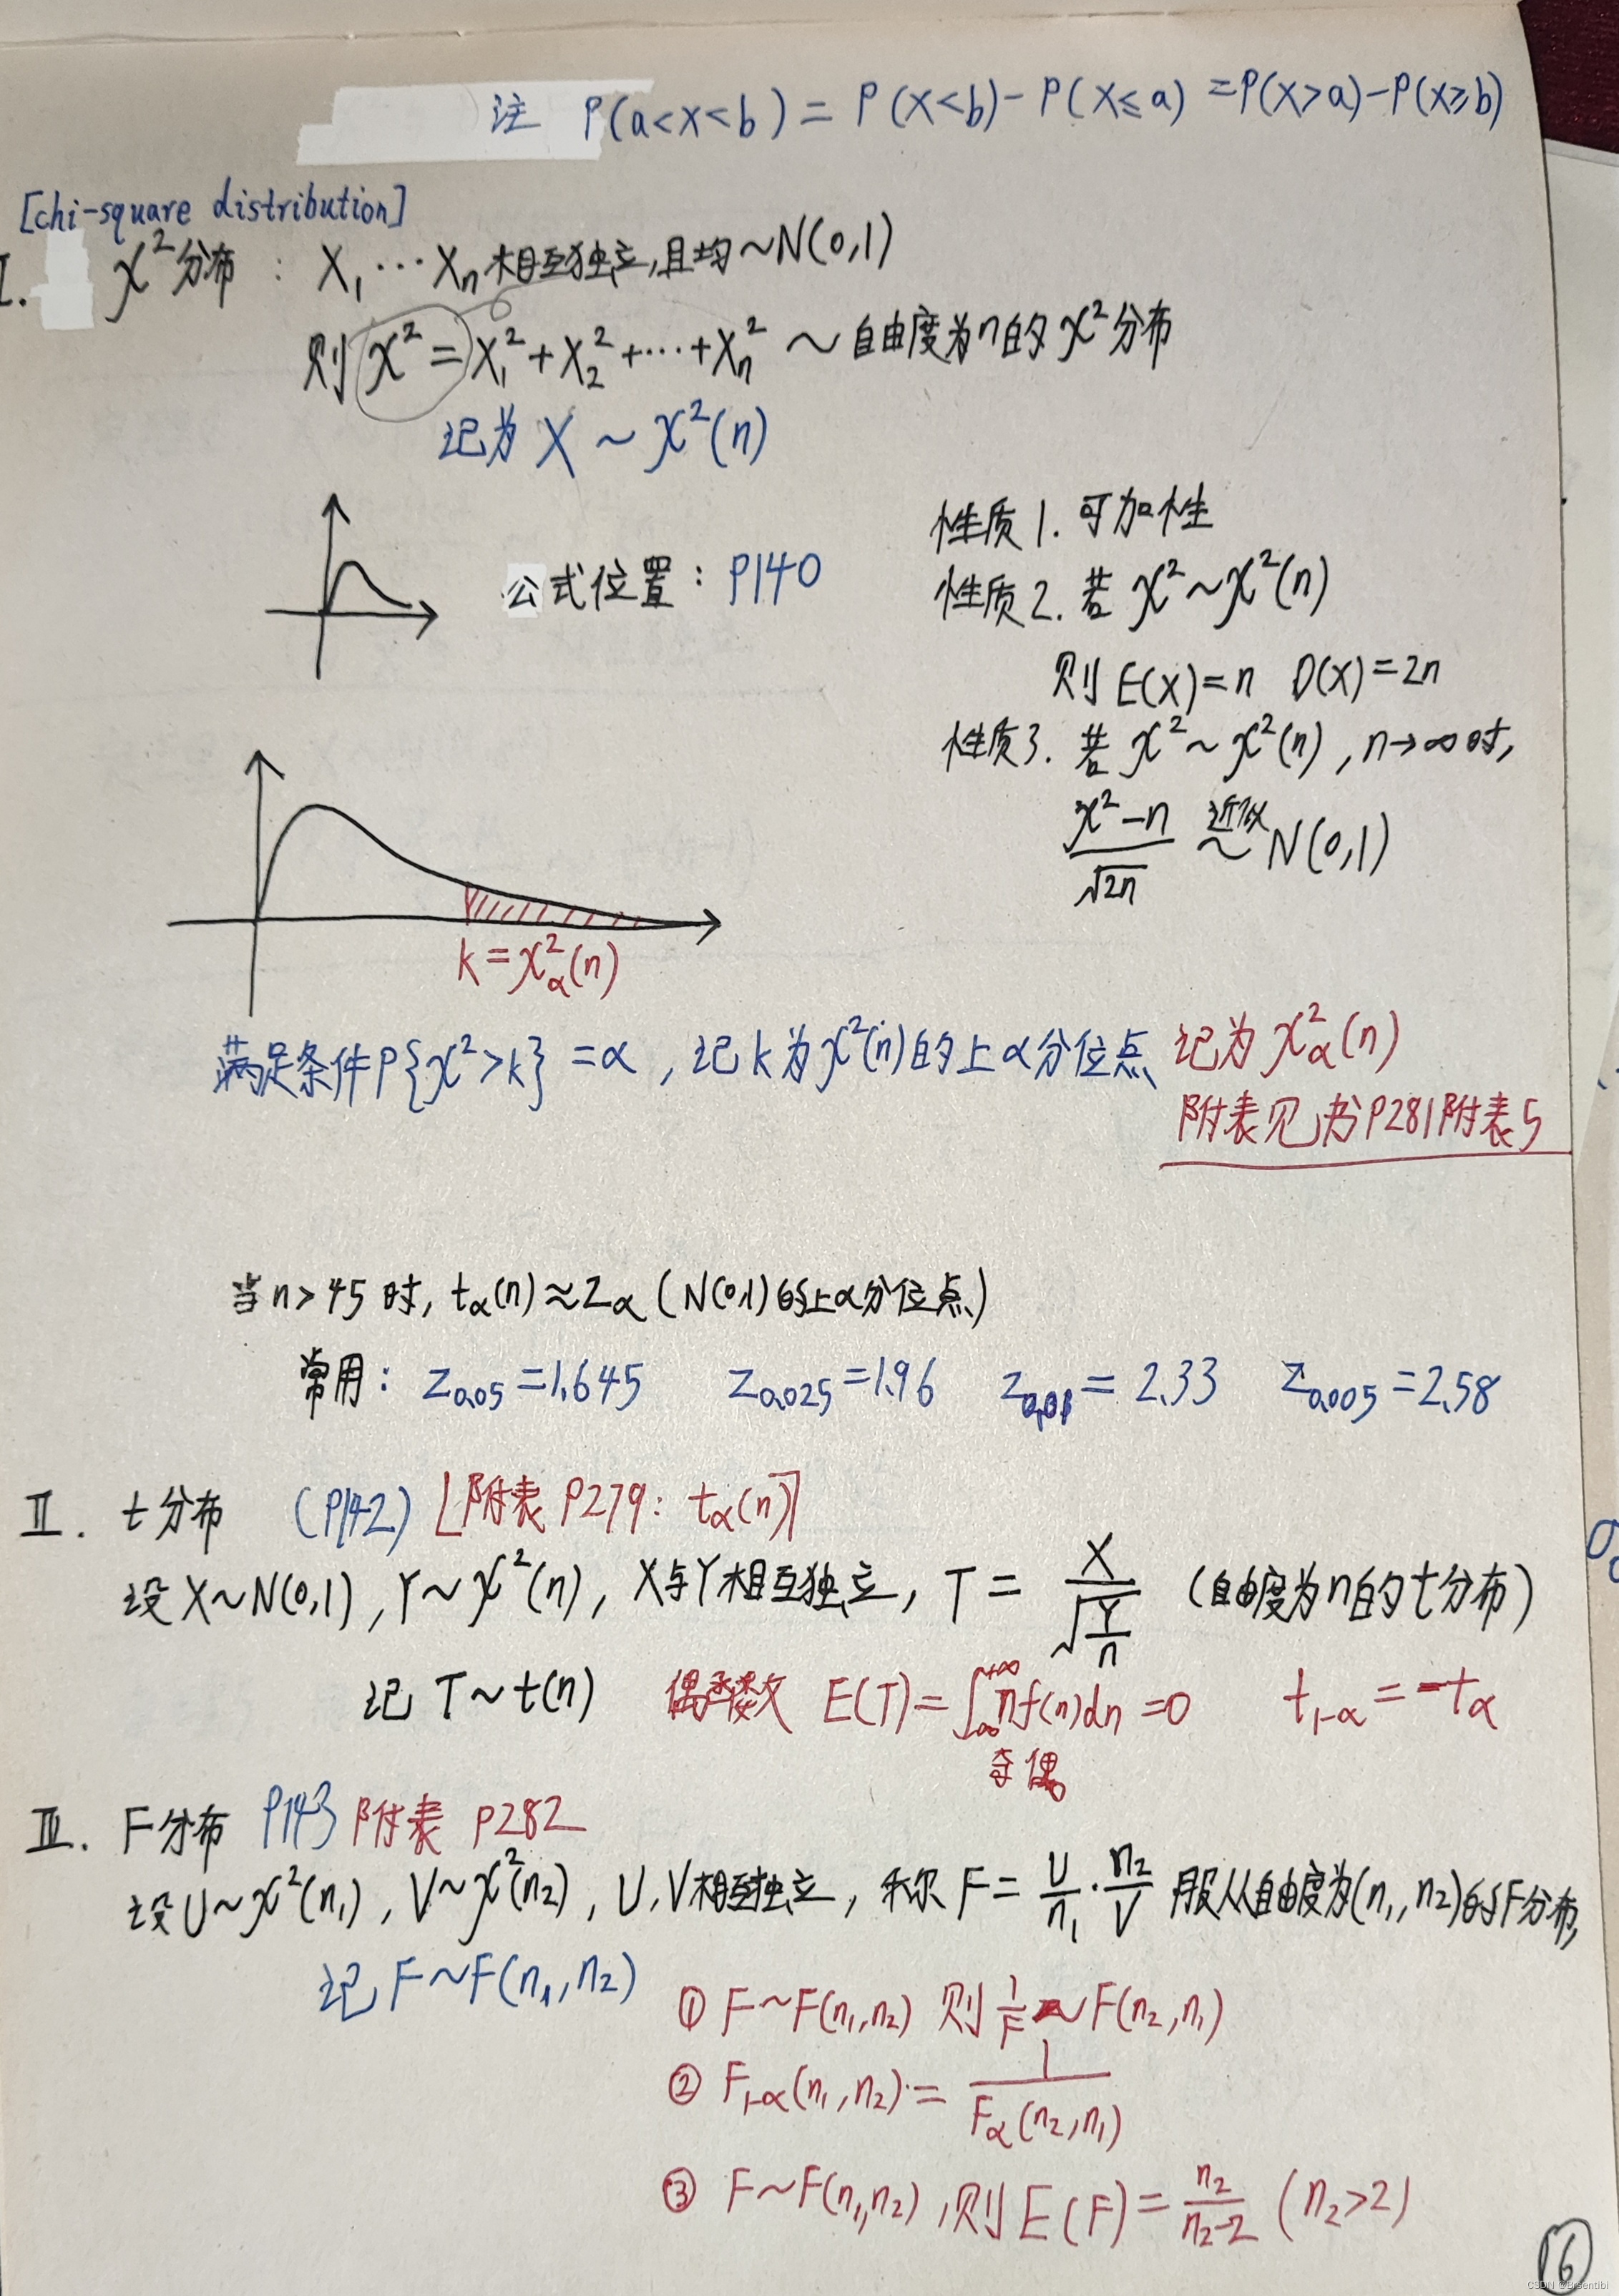 注 P(a<X<b) = P(X<b) - P(X≤a) = P(X>a) - P(X≥b)
[chi-square distribution]
I. χ²分布 : X₁ ⋯ Xₙ 相互独立,且均~N(0,1)
则 χ² = X₁² + X₂² + ⋯ + Xₙ² ~ 自由度为n的χ²分布
记为 X ~ χ²(n)
公式位置: P140
性质1. 可加性
性质2. 若 χ²~χ²(n)
则 E(X)=n D(X)=2n
性质3. 若 χ²~χ²(n), n→∞时,
(χ²-n)/√2n 近似~ N(0,1)
k = χ²α(n)
满足条件P{χ²>k} = α, 记k为χ²(n)的上α分位点 记为 χ²α(n)
附表见书P281附表5
当n>45时, tα(n)≈Zα (N(0,1)的上α分位点)
常用: Z₀.₀₅=1.645 Z₀.₀₂₅=1.96 Z₀.₀₁=2.33 Z₀.₀₀₅=2.58
II. t分布 (P142) [附表 P279: tα(n)]
设X~N(0,1), Y~χ²(n), X与Y相互独立, T = X/√(Y/n) (自由度为n的t分布)
记 T~t(n) 偶函数 E(T)=∫₋∞⁺∞ nf(n)dn=0 t₁₋α = -tα
奇偶
III. F分布 P143 附表 P282
设U~χ²(n₁), V~χ²(n₂), U,V相互独立, 称 F = U/n₁ · n₂/V 服从自由度为(n₁,n₂)的F分布,
记 F~F(n₁,n₂)
① F~F(n₁,n₂) 则 1/F ~ F(n₂,n₁)
② F₁₋α(n₁,n₂) = 1/Fα(n₂,n₁)
③ F~F(n₁,n₂), 则 E(F) = n₂/(n₂-2) (n₂>2)
16
CSDN @Brsentibi